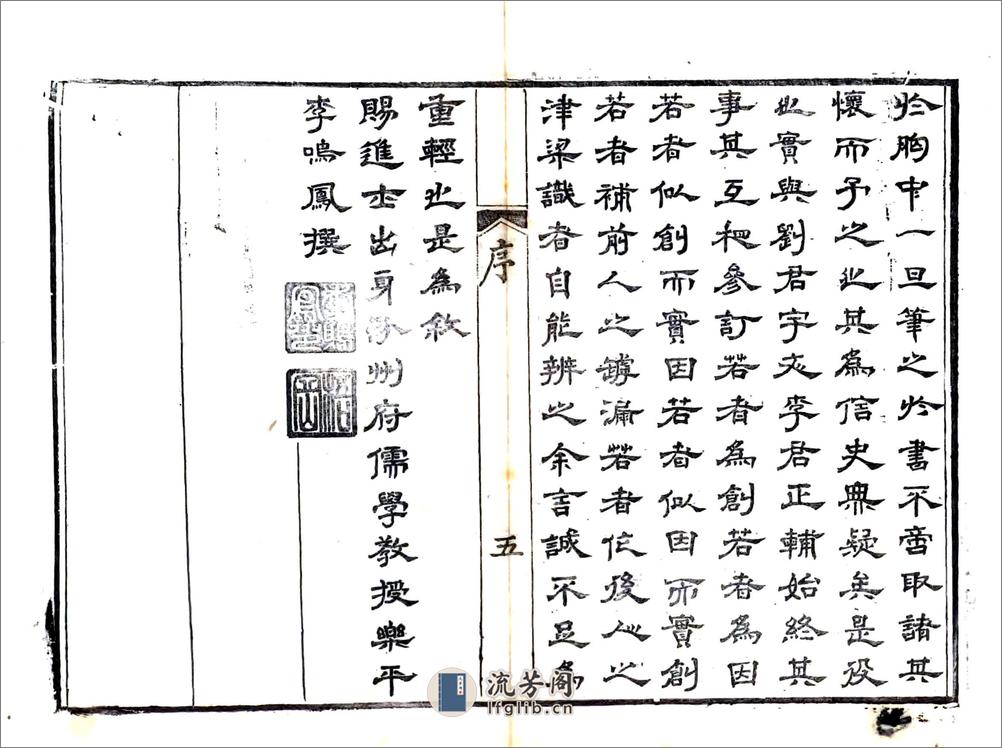 於胸中一旦筆之於書不啻取諸其
懷而予之也其為信史無疑矣是役
也實與劉君宇李君正輔始終其
事其互參訂若者為創若者為因
若者似創而實因若者似因而實創
若者補前人之罅漏若者作後人之
津梁識者自能辨之余言誠不足為
序
五
重輕也是為敘
賜進士出身汾州府儒學教授樂平
李鳴鳳撰
流芳阁
lfglib.cn